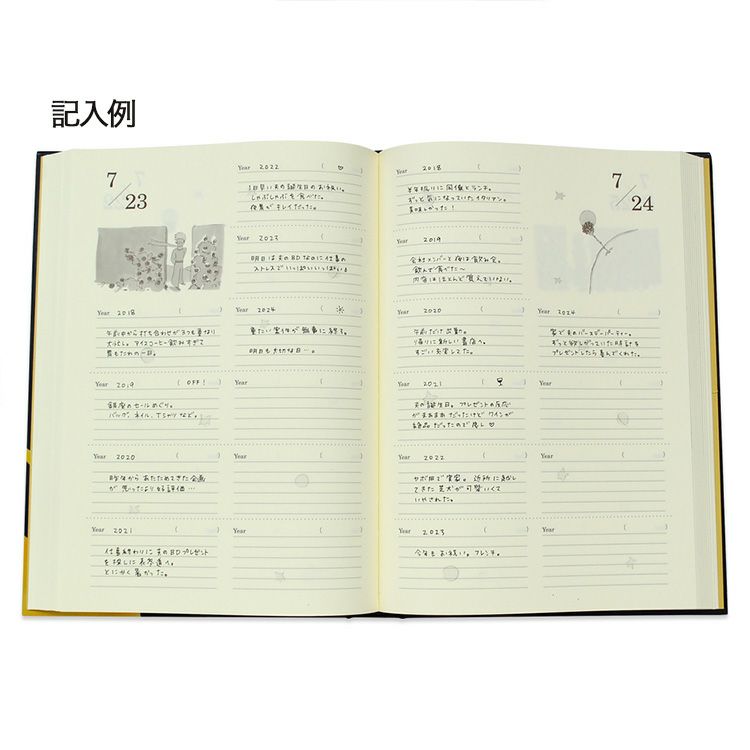 記入例
7/23
Year 2018 ( )
午前中から打ち合わせが3つも重なり
大忙し。アイスコーヒー飲みすぎて
胃もたれの一日。
Year 2019 ( OFF! )
銀座のセールめぐり。
バッグ、ネイル、Tシャツなど。
Year 2020 ( )
昨年からあたためてきた企画
が思ったより好評価…
Year 2021 ( )
仕事終わりに夫のBDプレゼント
を探しに表参道へ。
とにかく暑かった。
Year 2022 ( ♡ )
1日早い夫の誕生日のお祝い。
しゃぶしゃぶを食べた。
夜景がキレイだった。
Year 2023 ( )
明日は夫のBDなのに仕事の
ストレスでいっぱいいっぱい!
Year 2024 ( ☀ )
重たい案件が無事に終了。
明日も大切な日…。
Year ( )
Year ( )
Year ( )
7/24
Year 2018 ( )
半年振りに同僚とランチ。
ずっと気になっていたイタリアン。
美味しかった!
Year 2019 ( )
会社メンバーと夜は飲み会。
飲んで食べた〜
内容はほとんど覚えていない。
Year 2020 ( )
午前だけ出勤。
帰りに新しい書店へ。
すごい充実してた。
Year 2021 ( )
夫の誕生日。プレゼントの反応
がまあまあだったけどワインが
絶品だったので良し♡
Year 2022 ( )
サボ担で実家。近所に
てきた芝犬が可愛いくて
いやされた。
Year 2023 ( )
今年もお祝い。フレンチ。
Year 2024 ( )
家で夫のバースデーパーティー。
ずっと欲しがっていた時計を
プレゼントしたら喜んでくれた。
Year ( )
Year ( )
Year ( )